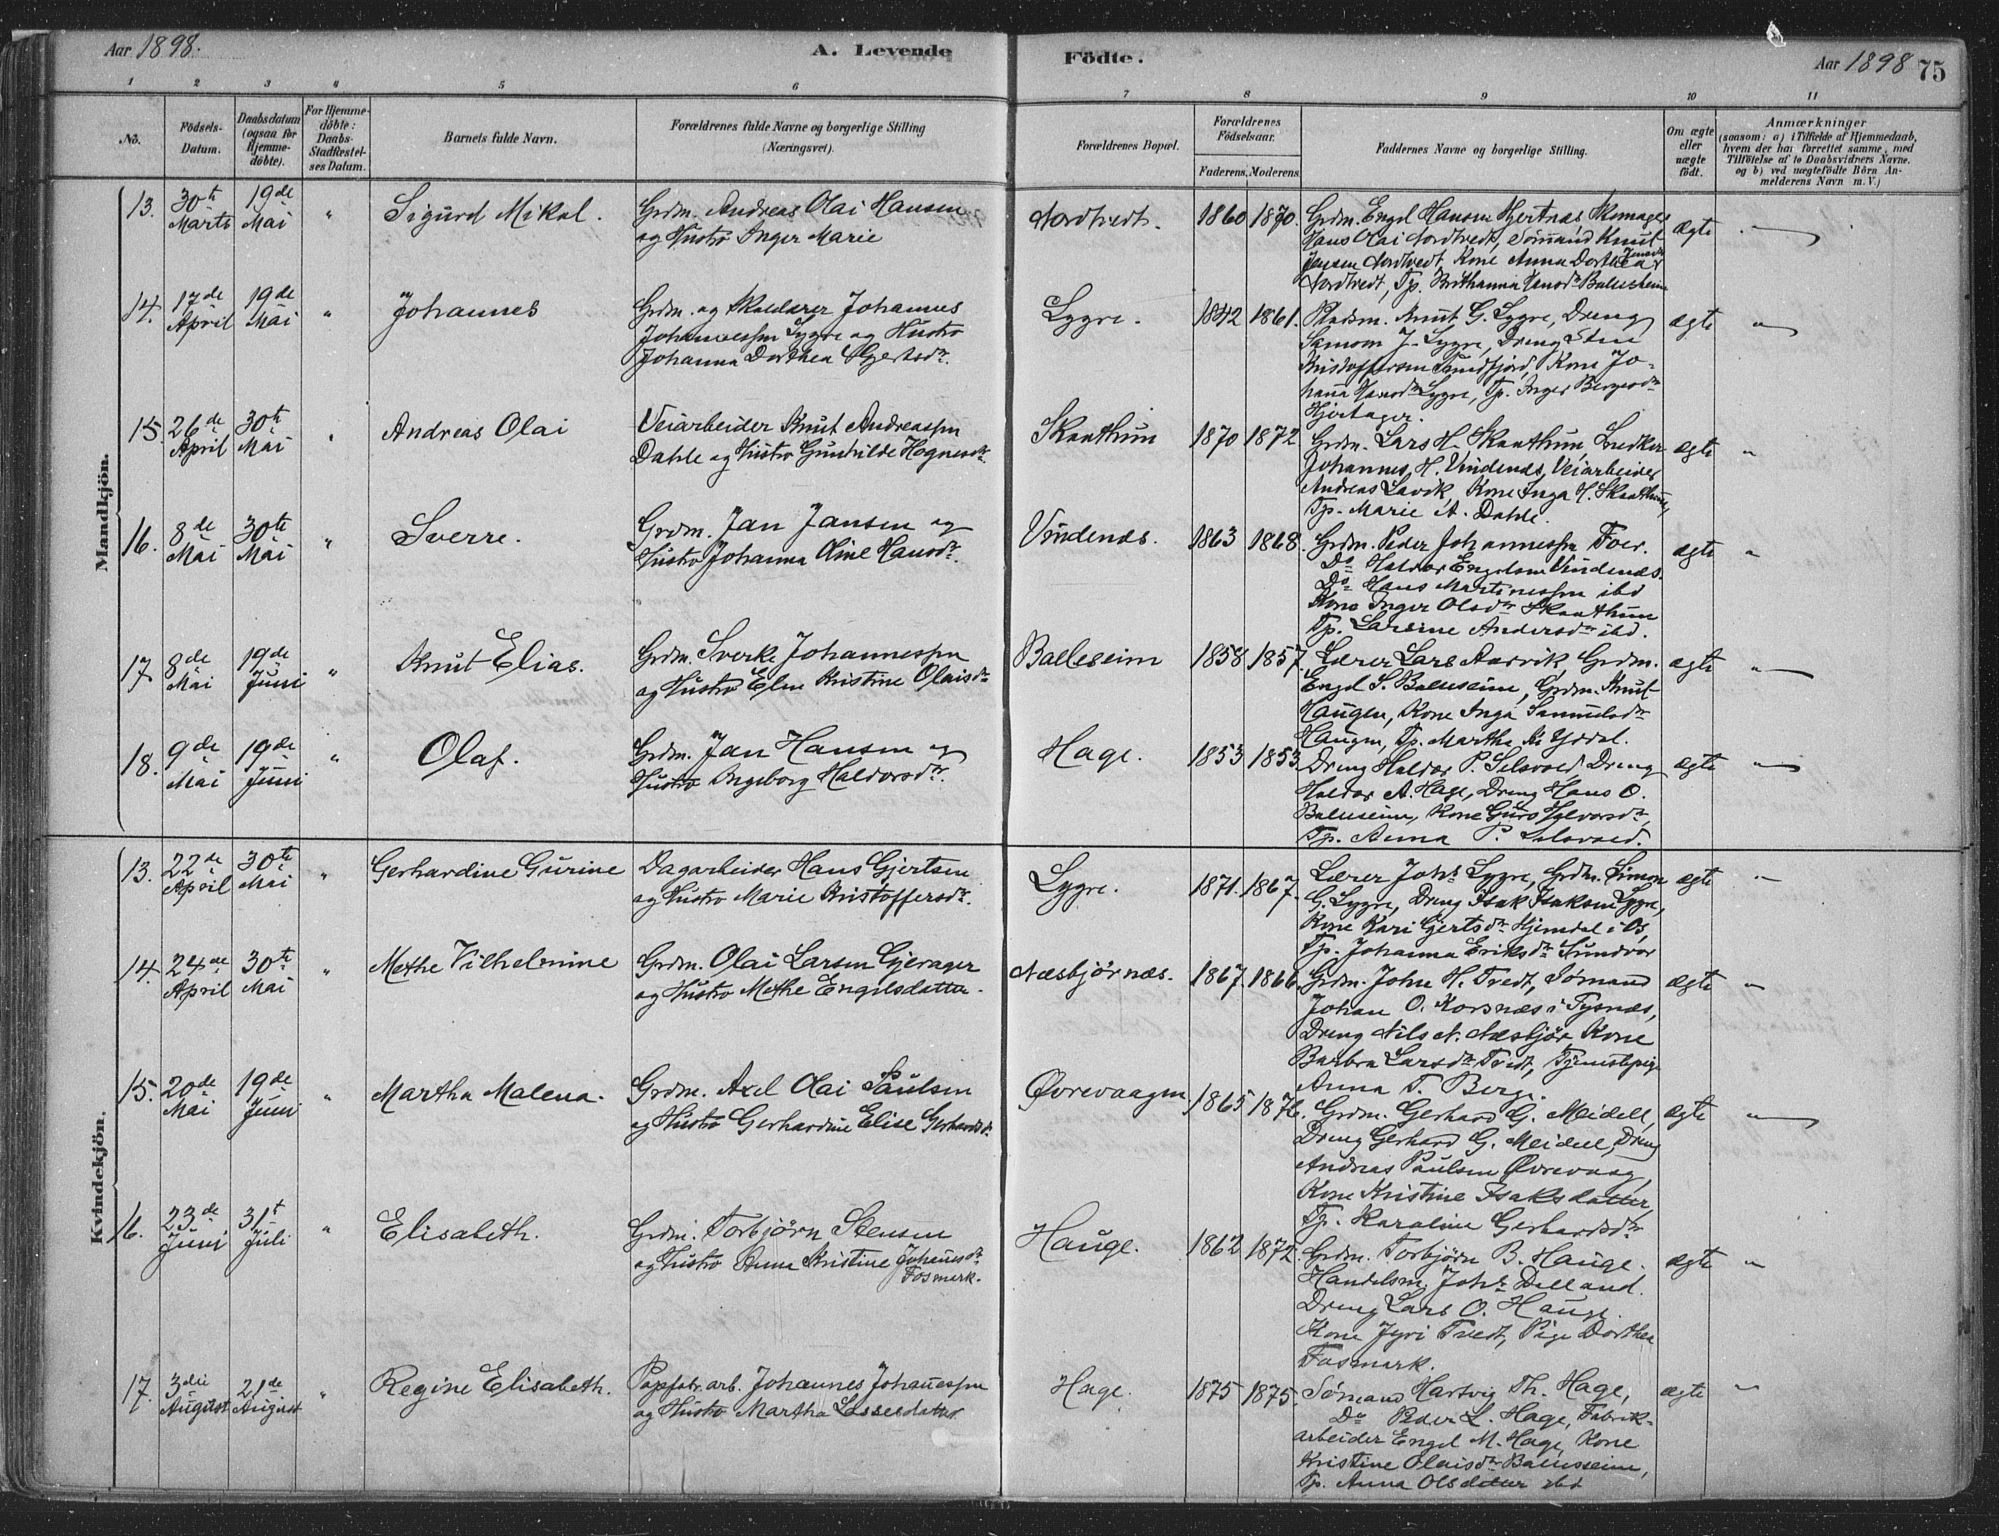 Aar 1898.
A. Levende
Födte.
Aar 1898
75
1 2 3 4 5 6 7 8 9 10 11
No.
Födsels-
Datum.
Daabsdatum
(ogsaa for
Hjemme-
döbte).
For Hjemme-
döbte:
Daabs-
Stadfæstel-
ses Datum.
Barnets fulde Navn.
Forældrenes fulde Navne og borgerlige Stilling
(Næringsvei).
Forældrenes Bopæl.
Forældrenes
Födselsaar.
Faderens. Moderens.
Faddernes Navne og borgerlige Stilling.
Om ægte
eller
uægte
födt.
Anmærkninger
(saasom: a) i Tilfælde af Hjemmedaab,
hvem der har forrettet samme, med
Tilföielse af to Daabsvidners Navne.
og b) ved uægtefödte Börn An-
melderens Navn m. V.)
Mandkjön.
13. 30te Marts
19de Mai
"
Sigurd Mikal.
Grdm. Andreas Olai Hansen
og Hustro Inger Marie
Nordtvedt.
1860 1870.
Grdm. Engel Hansen Hjertnæs, Skomager
Hans Olai Nordtvedt, Sømand Knut
Jensen Nordtvedt, Kone Anna Dorthea
Nordtvedt, Tp. Brithanna Hansdr Balleseim
ægte
"
14. 17de April
19de Mai
"
Johannes
Grdm. og Skolelærer Johannes
Johannessen Lygre og Hustro
Johanna Dorthea Gjertsdr.
Lygre.
1842 1861.
Pladsm. Knut G. Lygre, Dreng
Samson J. Lygre, Dreng Sten
Kristoffersen Sundfjord, Kone Jo-
hanna Hansdr Lygre, Tp. Inger Bergesdr
Hjertager.
ægte
"
15. 26de April
30te Mai
"
Andreas Olai
Veiarbeider Knut Andreassen
Dahle og Hustro Gunhilde Hognesdr.
Skaathun
1870 1872.
Grdm. Lars H. Skaathun,
Johannes H. Vindenæs, Veiarbeider
Andreas Lavik, Kone Inga H. Skaathun,
Tp. Marie A. Dahle.
ægte
"
16. 8de Mai
30te Mai
"
Sverre.
Grdm. Jan Jansen og
Hustro Johanna Oline Hansdr.
Vindenæs.
1863 1868.
Grdm. Peder Johannessen Toer.
Do Haldor Engelsen Vindenæs.
Do Hans Martinessen ibd
Kone Inger Olsdr Skaathun
Tp. Larsine Andersdr ibd.
ægte
"
17. 8de Mai
19de Juni
"
Knut Elias.
Grdm. Sverke Johannessen
og Hustro Elen Kristine Olaisdr
Balleseim
1858 1857.
Lærer Lars Aarvik, Grdm.
Engel S. Balleseim, Grdm. Knut
Haugen, Kone Inga Samuelsdr
Haugen, Tp. Martha K. Yddal.
ægte
"
18. 9de Mai
19de Juni
"
Olaf.
Grdm. Jan Hansen og
Hustro Ingeborg Haldorsdr.
Hage.
1853 1853
Dreng Haldor P. Selsvold, Dreng
Haldor A. Hage, Dreng Hans O.
Balleseim, Kone Guro Halvorsdr,
Tp. Anna P. Selsvold.
ægte
"
Kvindekjön.
13. 22de April
30te Mai
"
Gerhardine Gurine
Dagarbeider Hans Gjertsen
og Hustro Marie Kristoffersdr.
Lygre.
1871. 1867.
Lærer Johs Lygre, Grdm. Simon
G. Lygre, Dreng Isak Isaksen Lygre,
Kone Kari Gjertsdr Hjemdal i Os,
Tp. Johanna Eriksdr Sundvor
ægte
"
14. 24de April
30te Mai
"
Methe Vilhelmine
Grdm. Olai Larsen Gjerager
og Hustro Methe Engelsdatter.
Næsbjørnæs.
1867. 1866.
Grdm. John H. Tvedt, Sømand
Johan O. Korsnæs i Tysnæs,
Dreng Nils N. Næsbjør Kone
Barbra Larsdr Tvedt, Tjenestepige
Anna T. Berge.
ægte
"
15. 20de Mai
19de Juni
"
Martha Malena.
Grdm. Axel Olai Paulsen
og Hustro Gerhardine Elise Gerhardsdr.
Øvrevaagen
1865 1876.
Grdm. Gerhard G. Meidell,
Dreng Gerhard G. Meidell, Dreng
Andreas Paulsen Øvrevaag,
Kone Kristine Isaksdatter,
Tp. Karoline Gerhardsdr
ægte
"
16. 23de Juni
31t Juli
"
Elisabeth.
Grdm. Torbjørn Stensen
og Hustro Anna Kristine Johannesdr
Fosmark.
Hauge.
1862 1872.
Grdm. Torbjørn B. Hauge.
Handelsm. Johs Dalland.
Dreng Lars O. Hauge.
Kone Jyri Tvedt, Pige Dorthea
Fosmark.
ægte
"
17. 3die August
21de August
"
Regine Elisabeth.
Papfabr.arb. Johannes Johannessen
og Hustro Martha Lassesdatter
Hage.
1875 1875.
Sømand Hartvig Th. Hage,
Do Peder L. Hage, Fabrik-
arbeider Engel M. Hage, Kone
Kristine Olaisdr Balleseim,
Tp. Anna Olsdatter ibd
ægte
"